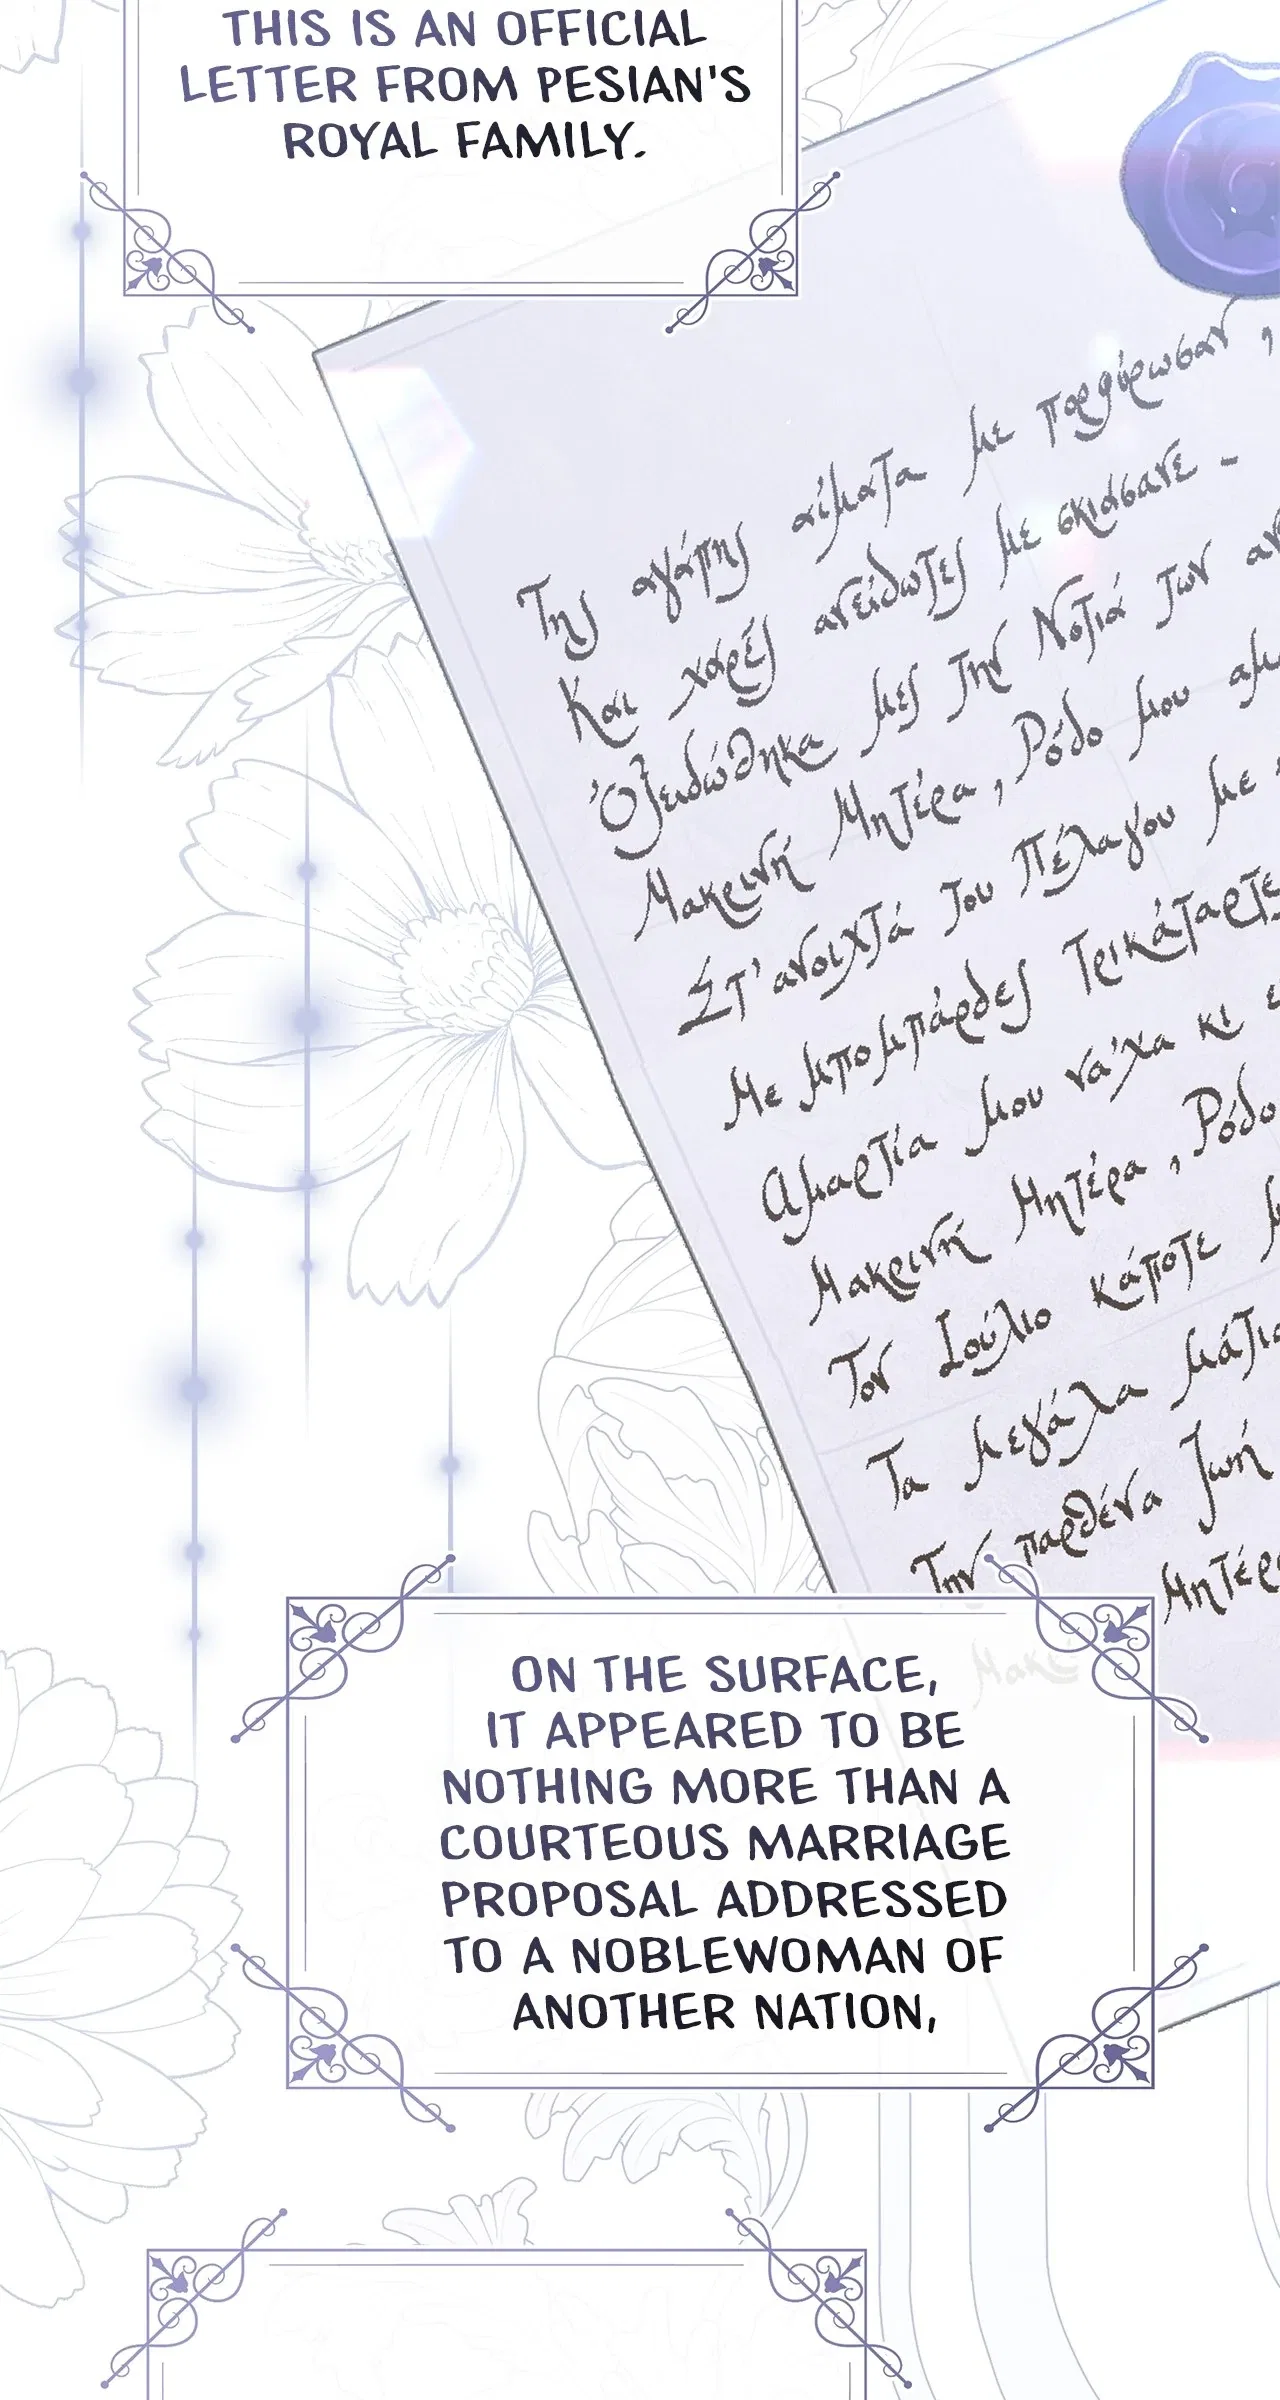 THIS IS AN OFFICIAL
LETTER FROM PESIAN'S
ROYAL FAMILY.
Της αγάπης αίματα με πορφύρωσαν,
Και χαρές ανείδωτες με σκιάσανε -
Οξειδώθηκα μες την Νοτιά των αν
Μακρινή Μητέρα, Ρόδο μου αμ
Στ' ανοιχτά του Πέλαγου με
Με μπομπάρδες Τρικάταρτε
Αμαρτία μου νά'χα κι
Μακρινή Μητέρα, Ρόδο
Τον Ιούλιο κάποτε
Τα μεγάλα μάτι
Την παρθένα ζωή
Μητέρ
ON THE SURFACE,
IT APPEARED TO BE
NOTHING MORE THAN A
COURTEOUS MARRIAGE
PROPOSAL ADDRESSED
TO A NOBLEWOMAN OF
ANOTHER NATION,